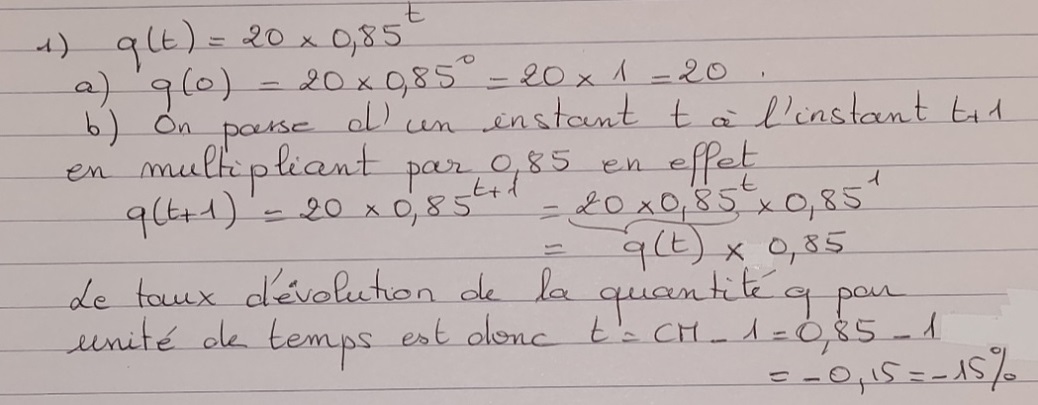 1) q(t) = 20 × 0,85^t
a) q(0) = 20 × 0,85^0 = 20 × 1 = 20 .
b) On passe d'un instant t à l'instant t+1
en multipliant par 0,85 en effet
q(t+1) = 20 × 0,85^{t+1} = 20 × 0,85^t × 0,85^1
= q(t) × 0,85
Le taux d'évolution de la quantité q par
unité de temps est donc t = CM - 1 = 0,85 - 1
= -0,15 = -15%